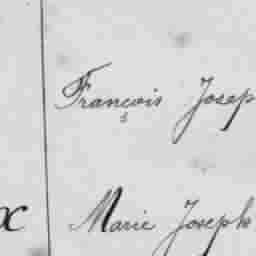 François Josep
x Marie Joseph